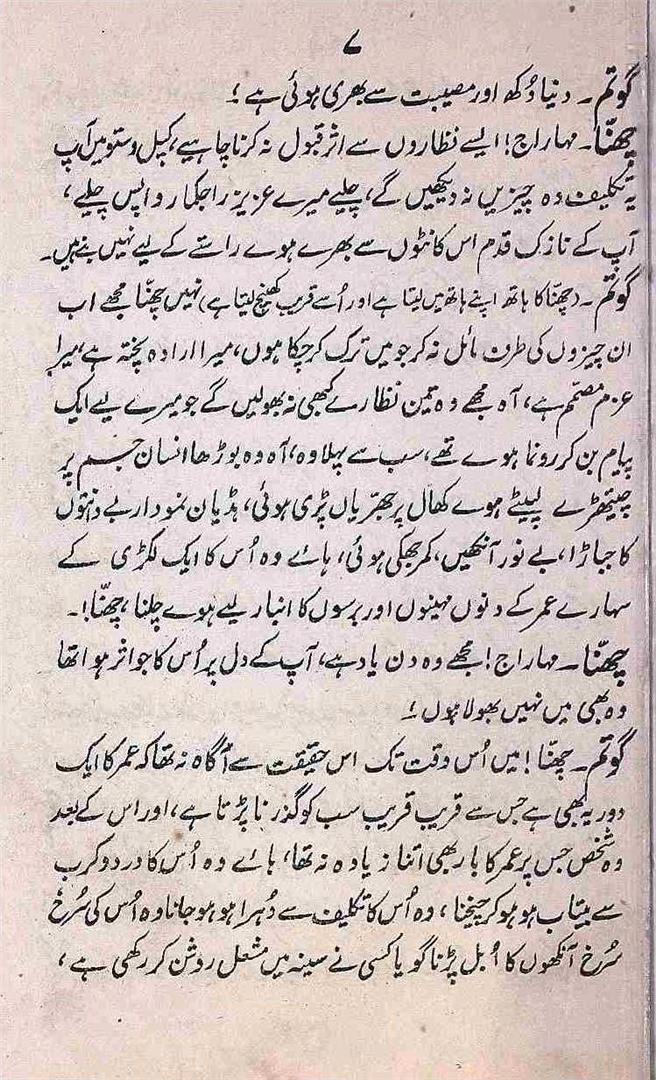 ۷
گوتم ۔ دنیا دُکھ اور مصیبت سے بھری ہوئی ہے !
چھنّا ۔ مہاراج ! ایسے نظاروں سے اثر قبول نہ کرنا چاہیے، کپل وستو میں آپ
یہ تکلیف دہ چیزیں نہ دیکھیں گے، چلیے میرے عزیز راجکمار واپس چلیے،
آپ کے نازک قدم اس کانٹوں سے بھرے ہوے راستے کے لیے نہیں بنے ہیں۔
گوتم ۔ (چھنّا کا ہاتھ اپنے ہاتھ میں لیتا ہے اور اُسے قریب کھینچ لیتا ہے) نہیں چھنّا مجھے اب
ان چیزوں کی طرف مائل نہ کر جو میں ترک کر چکا ہوں، میرا ارادہ پختہ ہے، میرا
عزم مصمّم ہے، آہ مجھے وہ تین نظارے کبھی نہ بھولیں گے جو میرے لیے ایک
پیام بن کر رونما ہوے تھے، سب سے پہلا وہ، آہ وہ بوڑھا انسان جسم پر
چیتھڑے لپیٹے ہوے کھال پر جھرّیاں پڑی ہوئی، ہڈیان نمودار بے دنتوں
کا جباڑا، بے نور آنکھیں، کمر جھکی ہوئی، ہاے وہ اُس کا ایک لکڑی کے
سہارے عمر کے دنوں مہینوں اور برسوں کا انبار لیے ہوے چلنا، چھنّا !۔
چھنّا ۔ مہاراج ! مجھے وہ دن یاد ہے، آپ کے دل پر اُس کا جو اثر ہوا تھا
وہ بھی میں نہیں بھولا ہوں !
گوتم ۔ چھنّا ! میں اُس وقت تک اس حقیقت سے آگاہ نہ تھا کہ عمر کا ایک
دور یہ بھی ہے جس سے قریب قریب سب کو گذرنا پڑتا ہے، اور اس کے بعد
وہ شخص جس پر عمر کا بار بھی اتنا زیادہ نہ تھا، ہاے وہ اُس کا درد و کرب
سے بیتاب ہو ہو کر چیخنا، وہ اُس کا تکلیف سے دُہرا ہو ہو جانا وہ اُس کی سُرخ
سُرخ آنکھوں کا اُبل پڑنا گویا کسی نے سینہ میں مشعل روشن کر رکھی ہے،